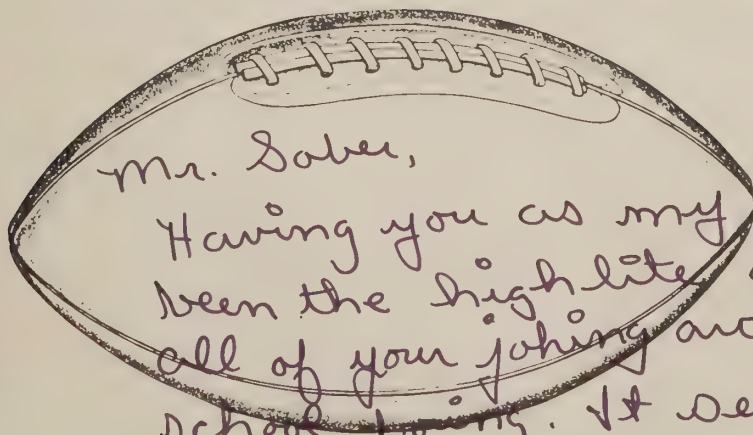 Mr. Saber,
Having you as my
been the highlite
all of your joking
school. It